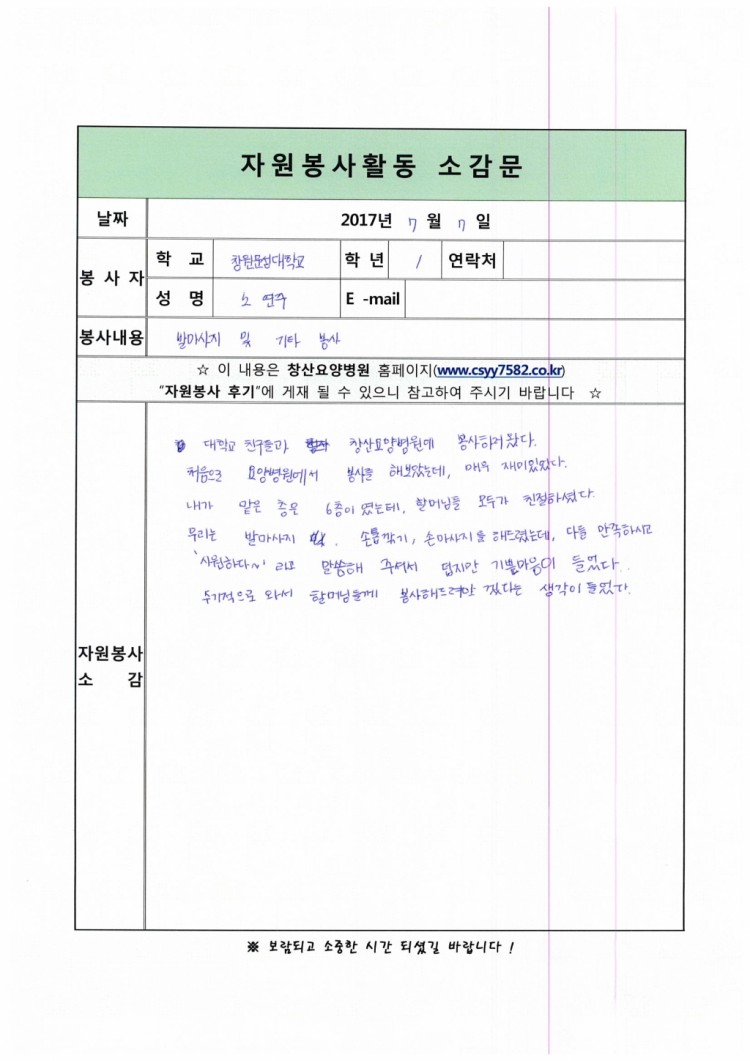 자원봉사활동 소감문
날짜 2017년 7 월 7 일
봉 사 자
학 교 창원문성대학교 학 년 1 연락처
성 명 소 연주 E -mail
봉사내용 발마사지 및 기타 봉사
☆ 이 내용은 창산요양병원 홈페이지(www.csyy7582.co.kr)
"자원봉사 후기"에 게재 될 수 있으니 참고하여 주시기 바랍니다 ☆
자원봉사
소 감
대학교 친구들과 창산요양병원에 봉사하러 왔다.
처음으로 요양병원에서 봉사를 해보았는데, 매우 재미있었다.
내가 맡은 층은 6층이 였는데, 할머님들 모두가 친절하셨다.
우리는 발마사지, 손톱깎기, 손마사지를 해드렸는데, 다들 만족하시고
'시원하다~' 라고 말씀해 주셔서 덥지만 기쁠마음이 들었다..
주기적으로 와서 할머님들께 봉사해드려야 겠다는 생각이 들었다.
※ 보람되고 소중한 시간 되셨길 바랍니다 !